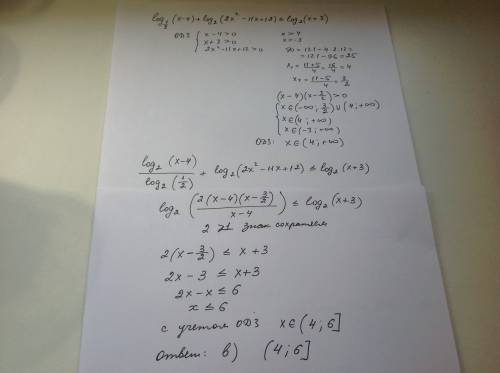 log_{1/2}(x-4) + log₂(2x² - 11x + 12) ≤ log₂(x+3)
ОДЗ { x-4>0 x>4
x+3>0 x>-3
2x²-11x+12>0 D = 121 - 4·2·12 =
= 121 - 96 = 25
x₁ = (11+5)/4 = 16/4 = 4
x₂ = (11-5)/4 = 3/2
(x-4)(x-3/2)>0
{ x∈(-∞; 3/2)∪(4;+∞)
x∈(4;+∞)
x∈(-3;+∞)
ОДЗ: x∈(4;+∞)
log₂(x-4)/log₂(1/2) + log₂(2x²-11x+12) ≤ log₂(x+3)
log₂(2(x-4)(x-3/2)/(x-4)) ≤ log₂(x+3)
2>1 знак сохраняем
2(x-3/2) ≤ x+3
2x-3 ≤ x+3
2x-x ≤ 6
x ≤ 6
с учетом ОДЗ x∈(4;6]
ответ: в) (4;6]